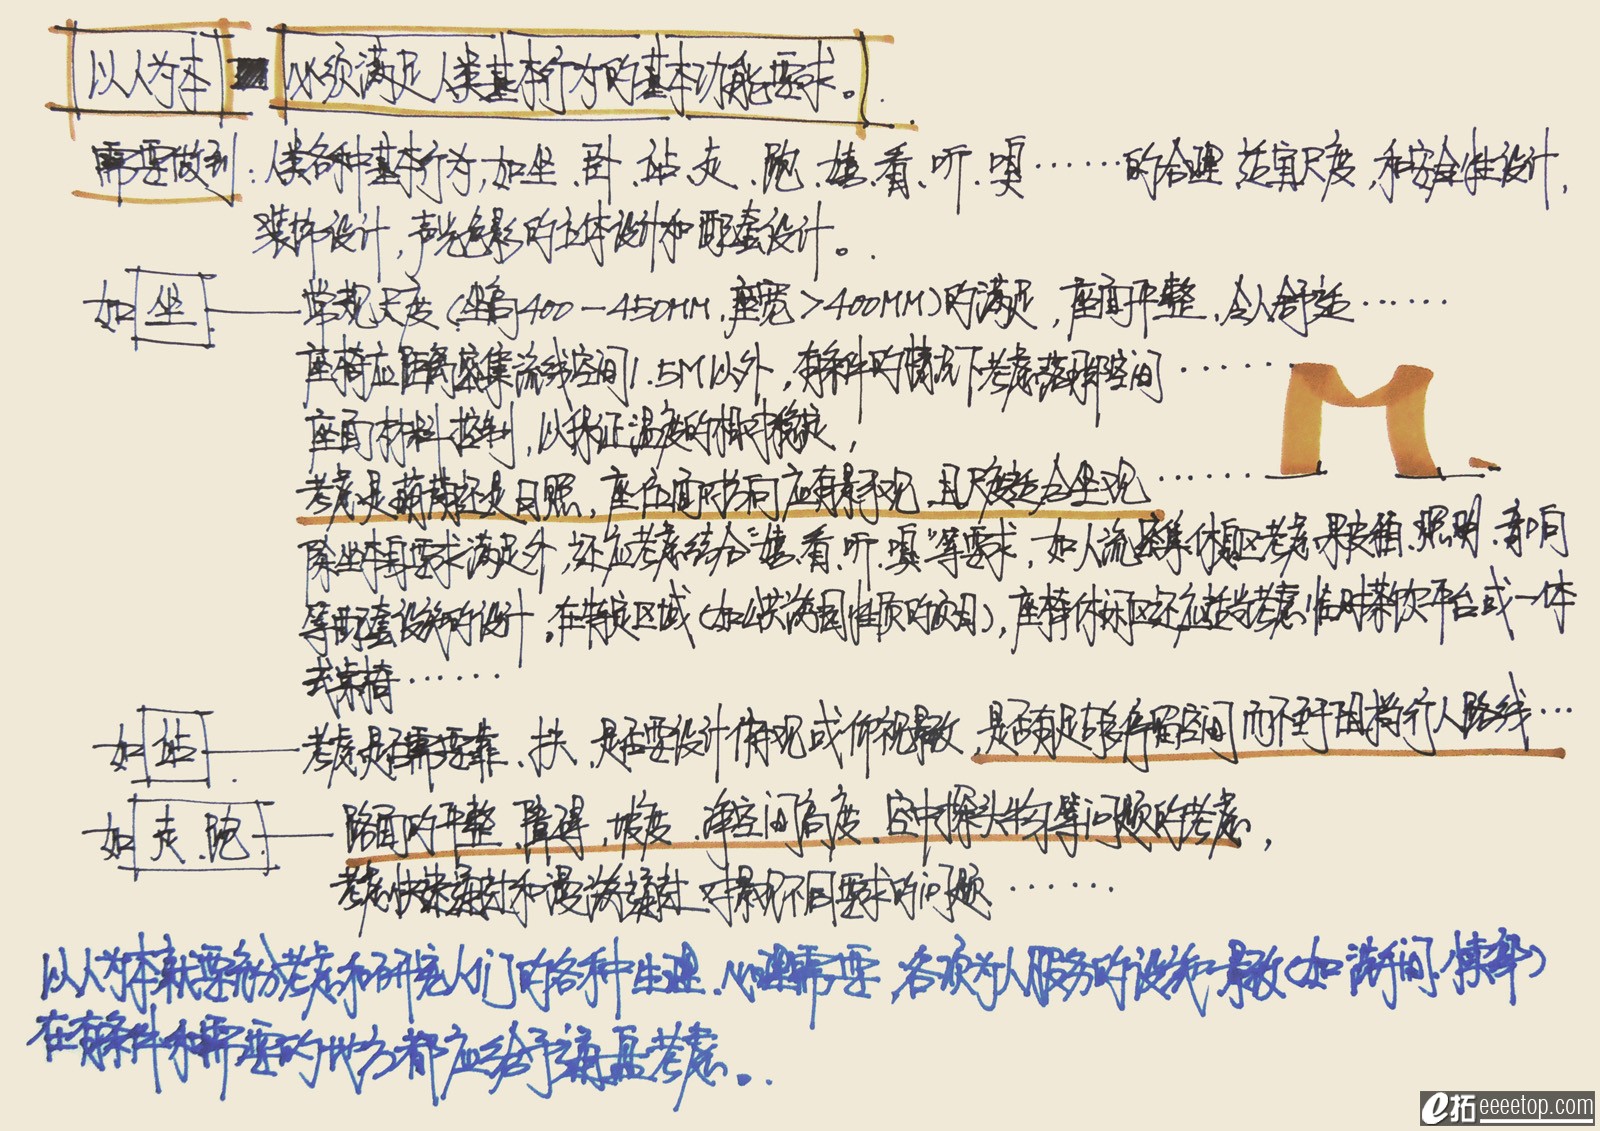 以人为本 必须满足人类基本行为的基本功能要求。
需要做到：人类各种基本行为，如坐、卧、站、走、跑、嬉、看、听、嗅……的合理适宜尺度，和安全性设计，
装饰设计，声光色影的立体设计和配套设计。
如坐——常规尺度（坐高400－450MM，座宽＞400MM）的满足，座面平整，令人舒适……
座椅应距离密集流线空间1.5M以外，有条件的情况下考虑落脚空间……
座面材料控制，以保证温度的相对稳定，
考虑是荫蔽还是日照，座位面对方向应有景可观，且尺度适合坐观……
除坐本身要求满足外，还应考虑结合“嬉、看、听、嗅”等要求，如人流密集休憩区考虑果皮箱、照明、音响
等配套设施的设计。在特定区域（如公共游园性质的项目），座椅休闲区还应适当考虑临时茶饮平台或一体
式桌椅……
如站——考虑是否需要靠、扶、是否要设计俯观或仰视景致，是否有足够停留空间而不至于阻挡行人路线…
如走、跑——路面的平整、障碍，坡度、净空间高度、空中探头物等问题的考虑，
考虑快速通过和漫游通过对景观不同要求的问题……
以人为本就要充分考虑和研究人们的各种生理、心理需要，各项为人服务的设施和景致（如洗手间、
在有条件和需要的地方都应给予通盘考虑。
e拓 eeeetop.com